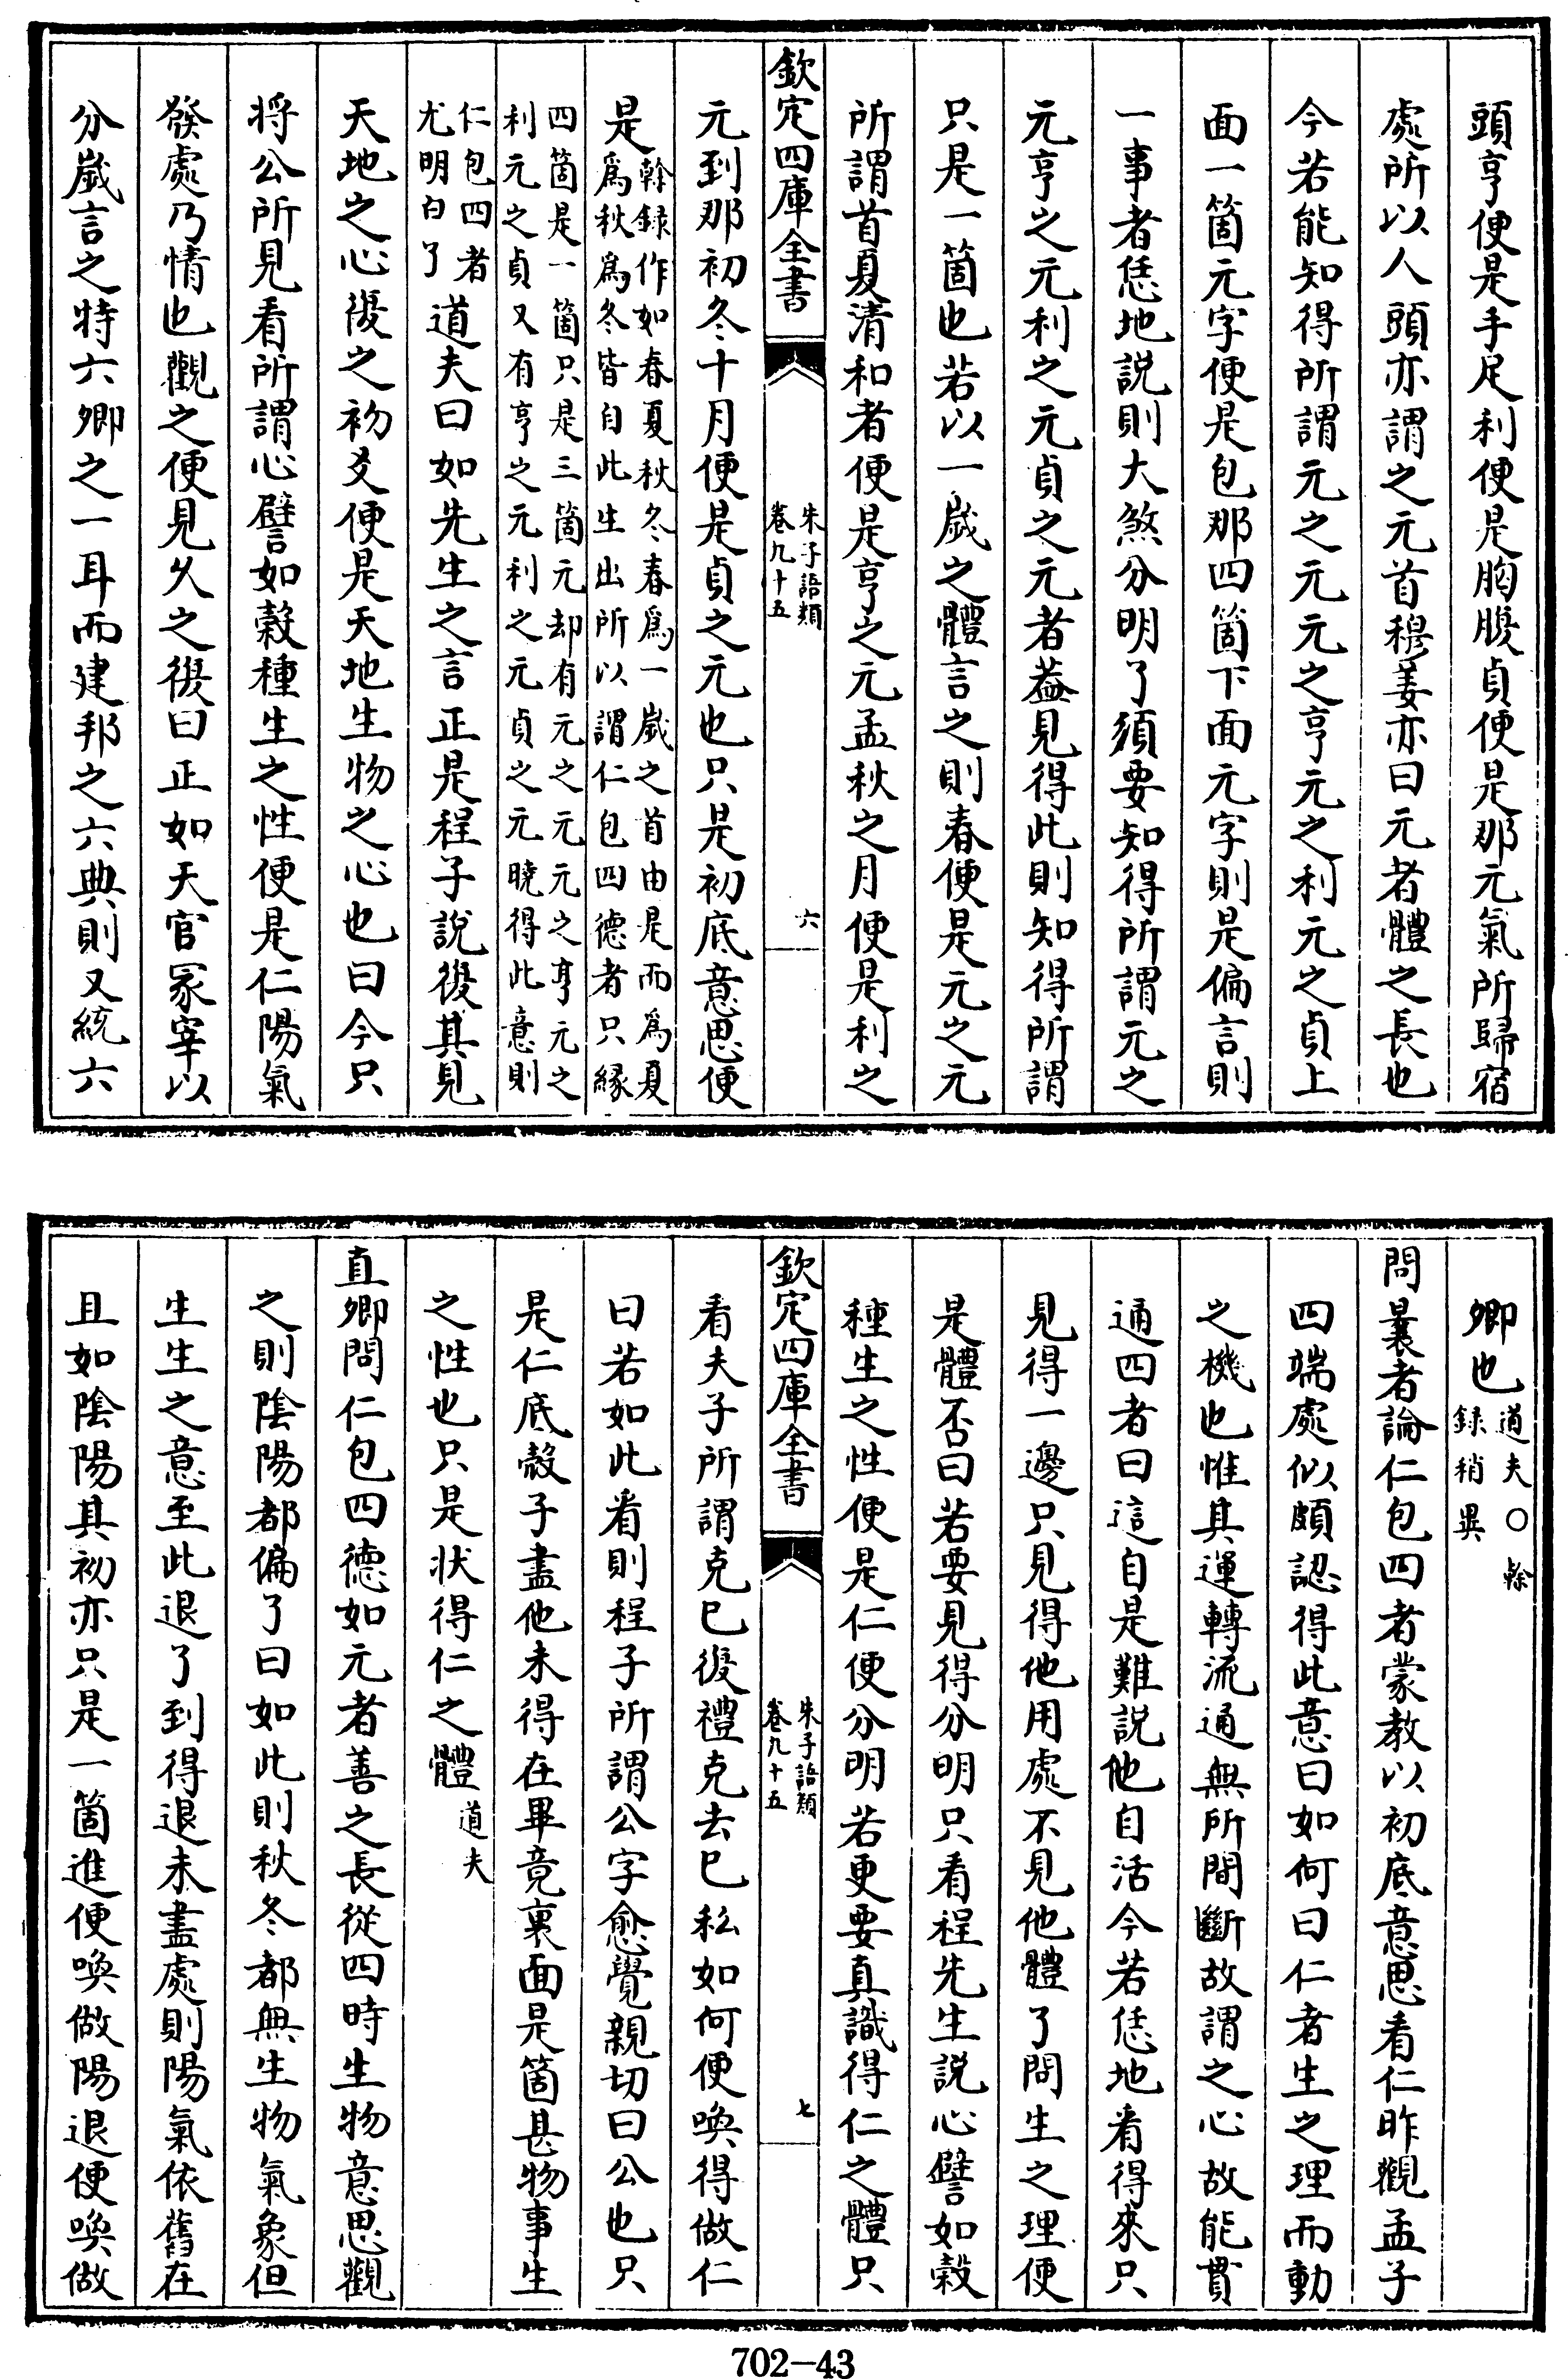 頭亨便是手足利便是胸腹貞便是那元氣所歸宿
處所以人頭亦謂之元首穆姜亦曰元者體之長也
今若能知得所謂元之元元之亨元之利元之貞上
面一箇元字便是包那四箇下面元字則是偏言則
一事者恁地説則大煞分明了須要知得所謂元之
元亨之元利之元貞之元者葢見得此則知得所謂
只是一箇也若以一歲之體言之則春便是元之元
所謂首夏清和者便是亨之元孟秋之月便是利之
欽定四庫全書
朱子語類
卷九十五
六
元到那初冬十月便是貞之元也只是初底意思便
是
榦録作如春夏秋冬春爲一歲之首由是而爲夏
爲秋爲冬皆自此生出所以謂仁包四德者只緣
四箇是一箇只是三箇元却有元之元元之亨元之
利元之貞又有亨之元利之元貞之元曉得此意則
仁包四者
尤明白了
道夫曰如先生之言正是程子說復其見
天地之心復之初爻便是天地生物之心也曰今只
將公所見看所謂心譬如穀種生之性便是仁陽氣
發處乃情也觀之便見久之復曰正如天官冢宰以
分歲言之特六卿之一耳而建邦之六典則又統六
卿也
道夫○榦
録稍異
問曩者論仁包四者蒙教以初底意思看仁昨觀孟子
四端處似頗認得此意曰如何曰仁者生之理而動
之機也惟其運轉流通無所間斷故謂之心故能貫
通四者曰這自是難説他自活今若恁地看得來只
見得一邊只見得他用處不見他體了問生之理便
是體否曰若要見得分明只看程先生説心譬如穀
種生之性便是仁便分明若更要真識得仁之體只
欽定四庫全書
朱子語類
卷九十五
七
看夫子所謂克已復禮克去已私如何便喚得做仁
曰若如此看則程子所謂公字愈覺親切曰公也只
是仁底殼子盡他未得在畢竟裏面是箇甚物事生
之性也只是狀得仁之體
道夫
直卿問仁包四德如元者善之長從四時生物意思觀
之則陰陽都偏了曰如此則秋冬都無生物氣象但
生生之意至此退了到得退未盡處則陽氣依舊在
且如陰陽其初亦只是一箇進便喚做陽退便喚做
702-43